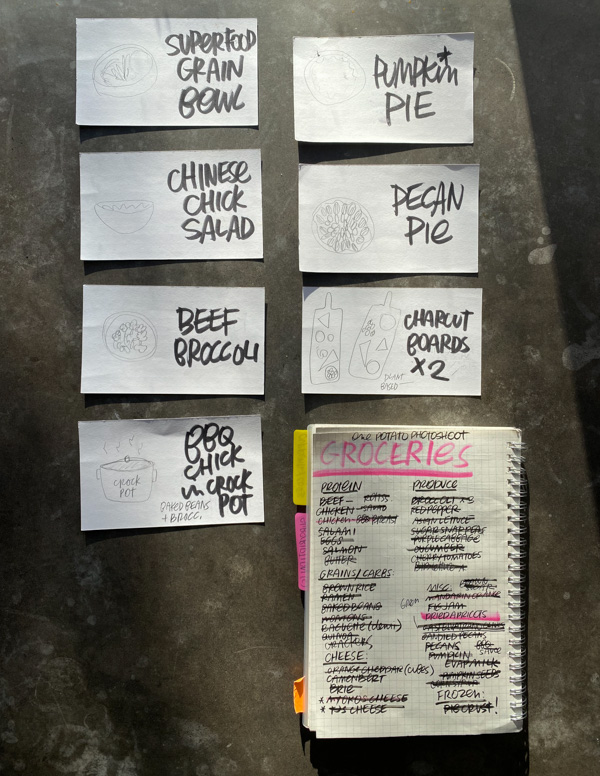 SUPERFOOD
GRAIN
BOWL
PUMPKIN*
PIE
CHINESE
CHICK
SALAD
PECAN
PIE
BEEF
BROCCOLI
CHARCUT
BOARDS
X2
PLANT
BASED
BBQ
CHICK
IN CROCK
POT
CROCK
POT
BAKED BEANS
+ BROCC.
ONE POTATO PHOTOSHOOT
GROCERIES
PROTEIN
BEEF -
CHICKEN -
CHICKEN - BBQ BREAST
SALAMI
EGGS
SALMON
BUTTER
GRAINS/CARBS:
BROWN RICE
RAMEN
BAKED BEANS
WONTONS
BAGUETTE (demi)
QUINOA
CRACKERS
CHEESE:
ORANGE CHEDDAR (CUBES)
CAMENBERT
BRIE
* MIYOKOS CHEESE
* CHEESE
PRODUCE
BROCCOLI x2
RED PEPPER
ASIAN LETTUCE
SUGAR SNAP PEAS
PURPLE CABBAGE
CUCUMBER
CHERRY TOMATOES
MISC.
MANDARIN ORANGE
FIG JAM
DRIED APRICOTS
CANDIED PECANS
PECANS
BBQ
SAUCE
PUMPKIN
EVAP MILK
PUMPKIN SEEDS
FROZEN:
PIE CRUST!